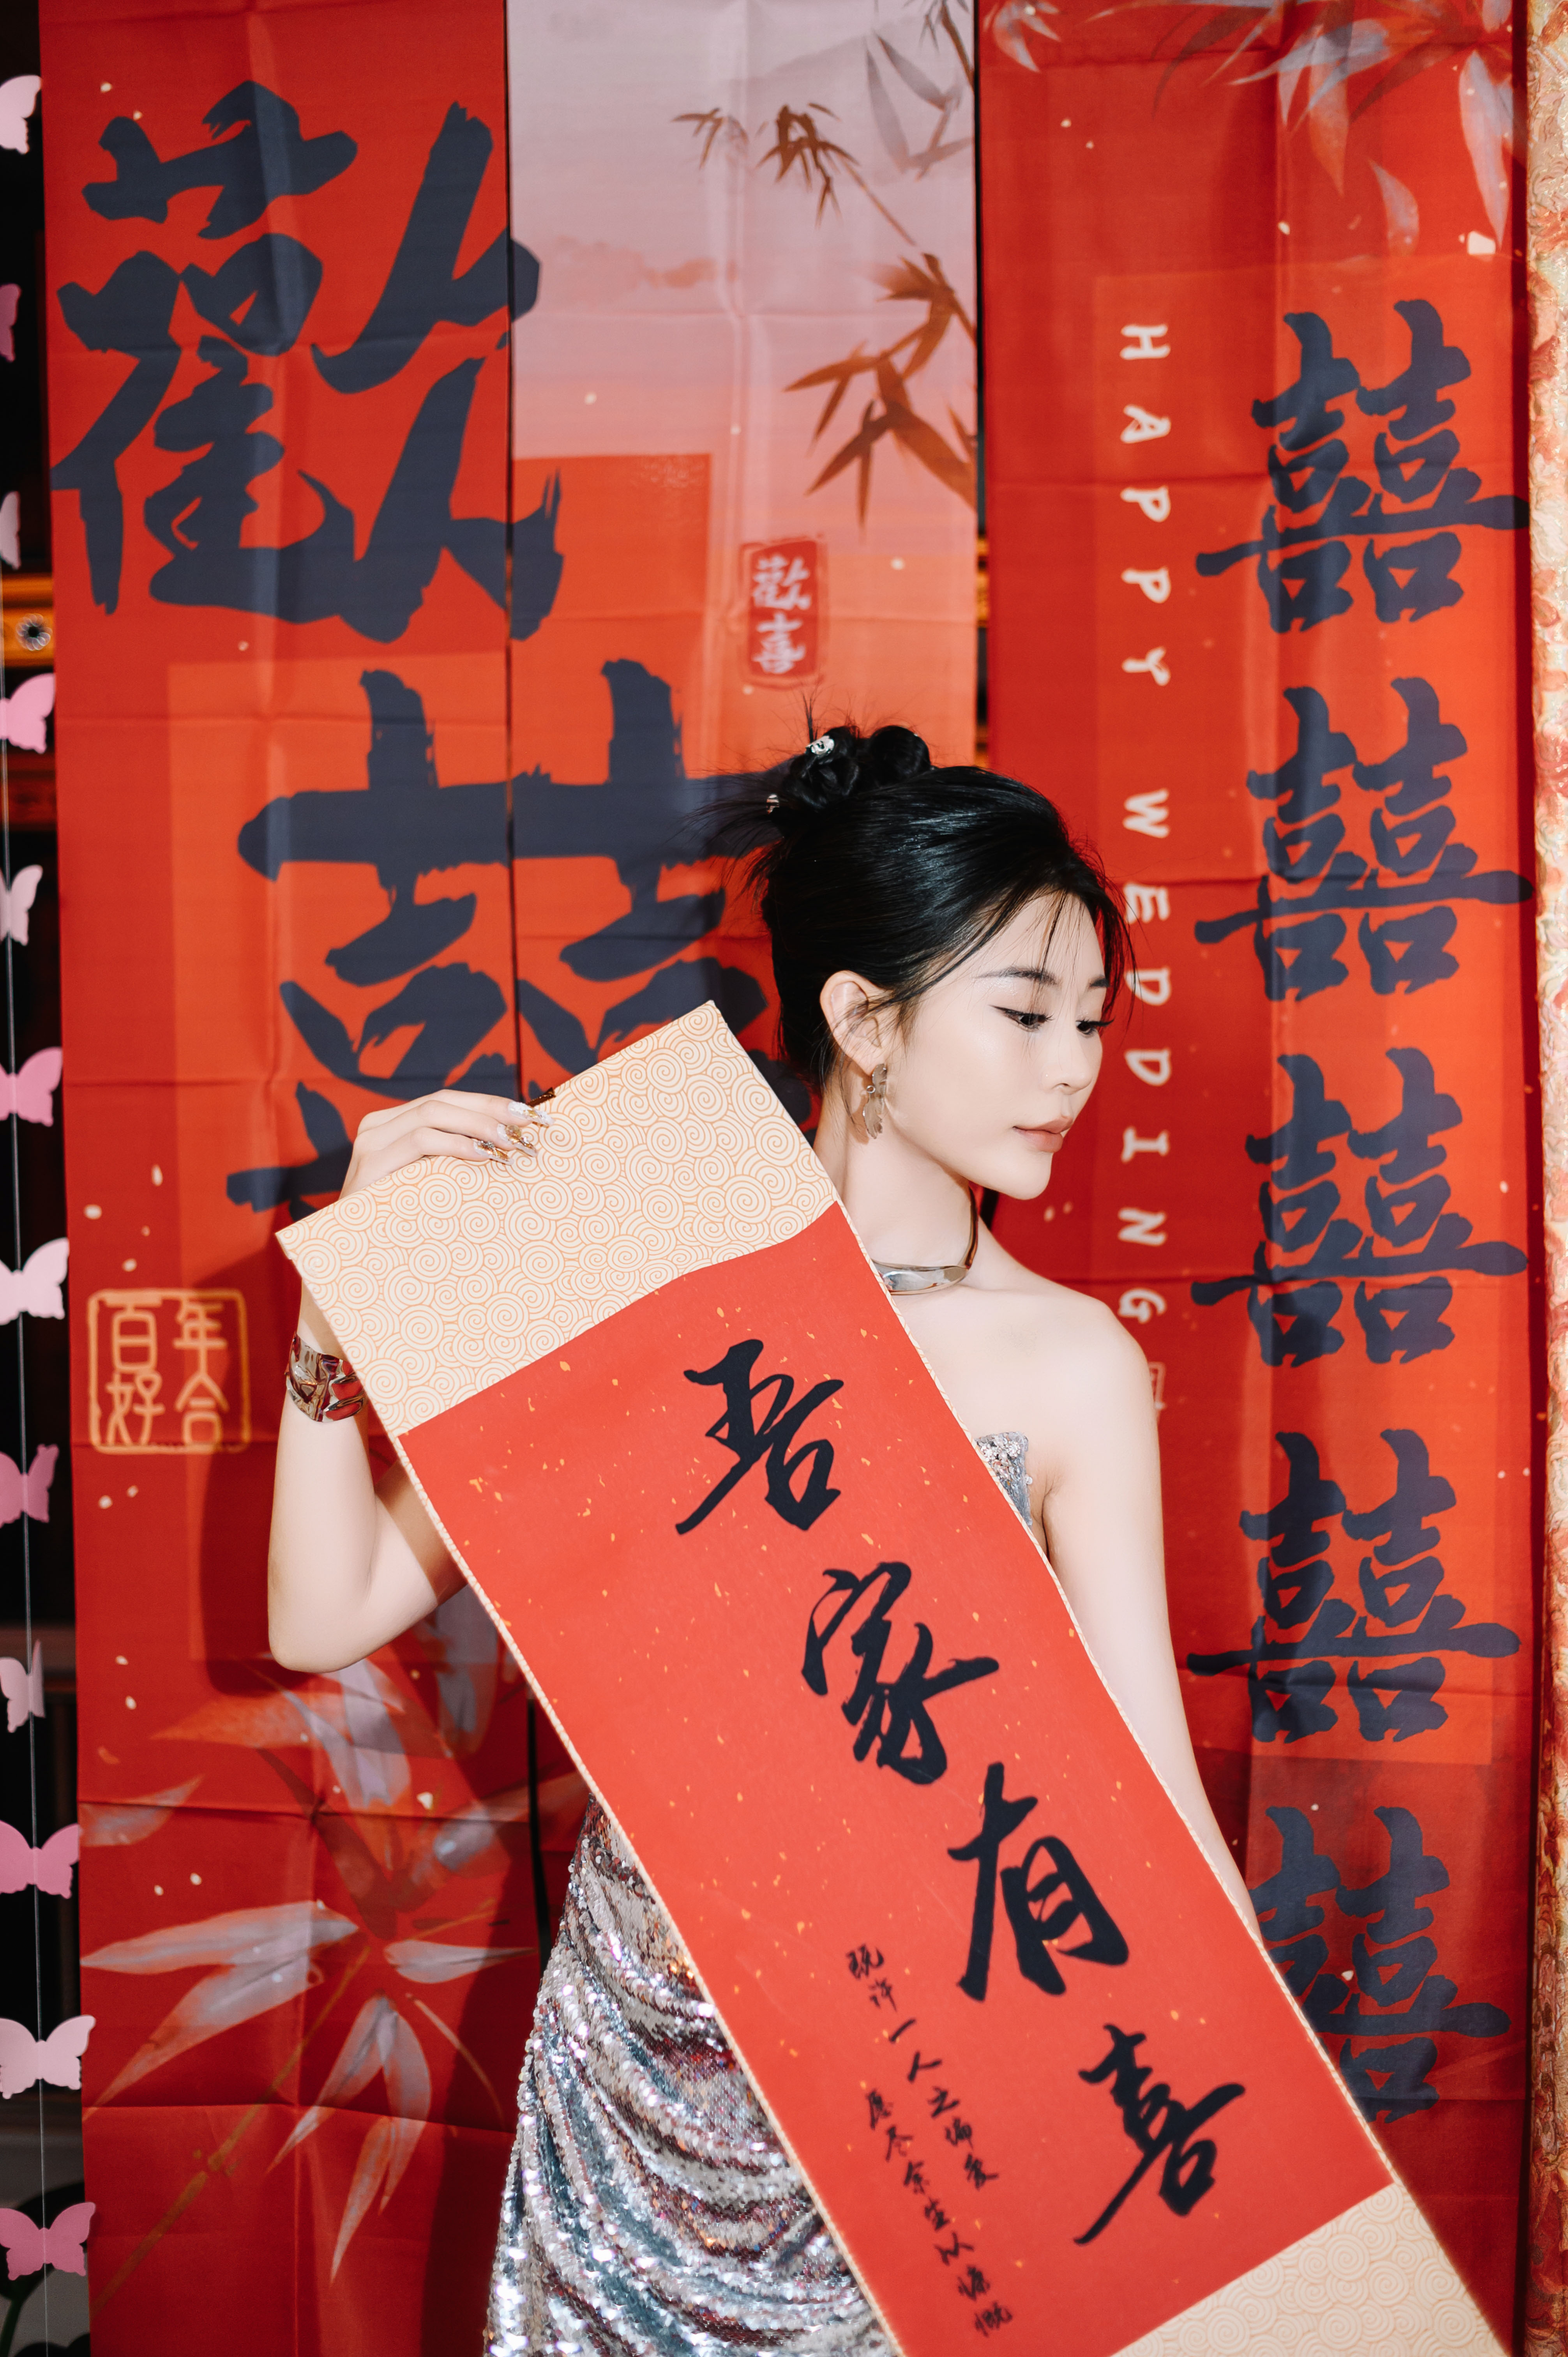 歡囍
歡喜
百年
好合
HAPPY WEDDING
囍囍囍囍囍
吾家有喜
既许一人之偏爱
愿尽余生以慷慨